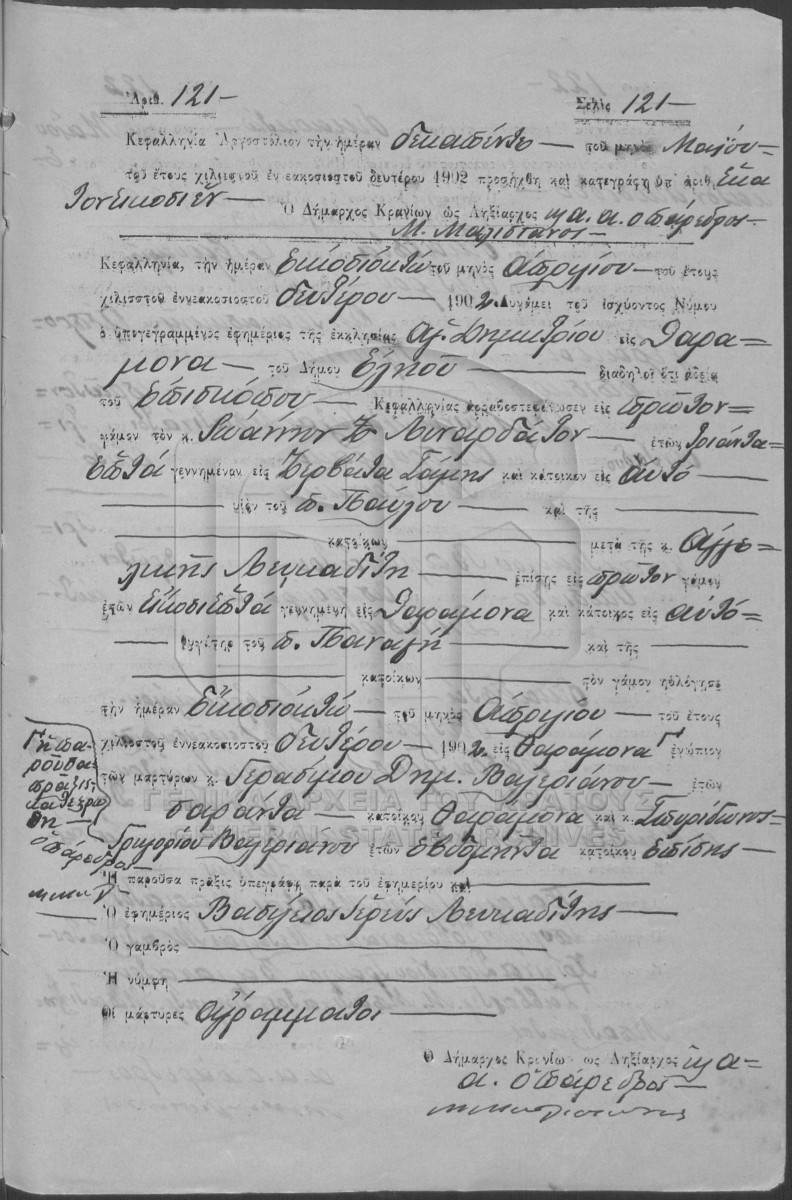 Ἀριθ. 121 — Σελὶς 121 —
Κεφαλληνία Ἀργοστόλιον τὴν ἡμέραν δεκαπέντε — τοῦ μηνὸς Μαΐου =
τοῦ ἔτους χιλιοστοῦ ἐννεακοσιοστοῦ δευτέρου 1902 προσήχθη καὶ κατεγράφη ὑπ' ἀριθ. Ἑκα
τον εικοσιέν — Ὁ Δήμαρχος Κρανίων ὡς Ληξίαρχος κ. α. α. ο πάρεδρος —
Μ. Μαλιστάνος —
Κεφαλληνία, τὴν ἡμέραν Εικοσιοκτώ τοῦ μηνὸς Απριλίου — τοῦ ἔτους
χιλιοστοῦ ἐννεακοσιοστοῦ δευτέρου — 1902. Δυνάμει τοῦ ἰσχύοντος Νόμου
ὁ ὑπογεγραμμένος ἐφημέριος τῆς ἐκκλησίας Αγ. Δημητρίου εἰς Φαρα =
μονα — τοῦ Δήμου Ελιού — διαδηλοῖ ὅτι ἀδείᾳ
τοῦ Επισκόπου — Κεφαλληνίας ἀρραβοστεφάνωσεν εἰς πρῶτον =
γάμον τὸν κ. Ιωάννην Ζ. Λιναρδάτον — ἐτῶν τριάντα =
επτά γεννημέναν εἰς Ζερβάτα Σάμης καὶ κάτοικον εἰς αυτό —
— υἱὸν τοῦ π. Παύλου — καὶ τῆς —
— κατοίκων — μετὰ τῆς κ. Αγγε =
λικής Λευκαδίτη — ἐπίσης εἰς πρῶτον γάμον
ἐτῶν εικοσιεπτά γεννημένη εἰς Φαραμονα καὶ κάτοικος εἰς αυτό =
— θυγάτηρ τοῦ π. Παναγή — καὶ τῆς —
— κατοίκων — τὸν γάμον ηὐλόγησε
τὴν ἡμέραν Εικοσιοκτώ — τοῦ μηνὸς Απριλίου — τοῦ ἔτους
χιλιοστοῦ ἐννεακοσιοστοῦ δευτέρου — 1902. εἰς Φαραμονα Γ ἐνώπιον
τῶν μαρτύρων κ. Γερασίμου Δημ. Βαλεριάνου — ἐτῶν
σαράντα — κατοίκου Φαραμονα καὶ κ. Σπυρίδωνος —
Γρηγορίου Βαλεριανου ἐτῶν εβδομήντα κατοίκου επίσης —
Ἡ παροῦσα πράξις ὑπεγράφη παρὰ τοῦ ἐφημερίου καὶ —
— Ὁ ἐφημέριος Βασίλειος Ιερεύς Λευκαδίτης —
Ὁ γαμβρὸς —
Ἡ νύμφη —
Οἱ μάρτυρες αγράμματοι —
Ὁ Δήμαρχος Κρανίων ὡς Ληξίαρχος κ. α =
α. ο πάρεδρος —
Γ η πα-
ρούσα
πράξις
κατεχρω
θη —
ο πάρεδρος —
ΓΕΝΙΚΑ ΑΡΧΕΙΑ ΤΟΥ ΚΡΑΤΟΥΣ
GENERAL STATE ARCHIVES